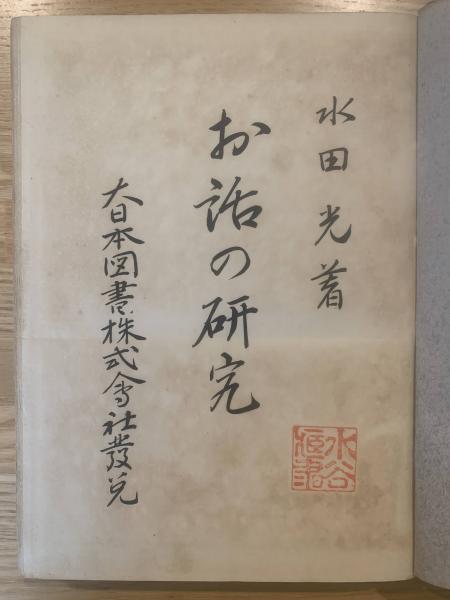 水田光著
お話の研究
大日本図書株式会社發兌
水谷